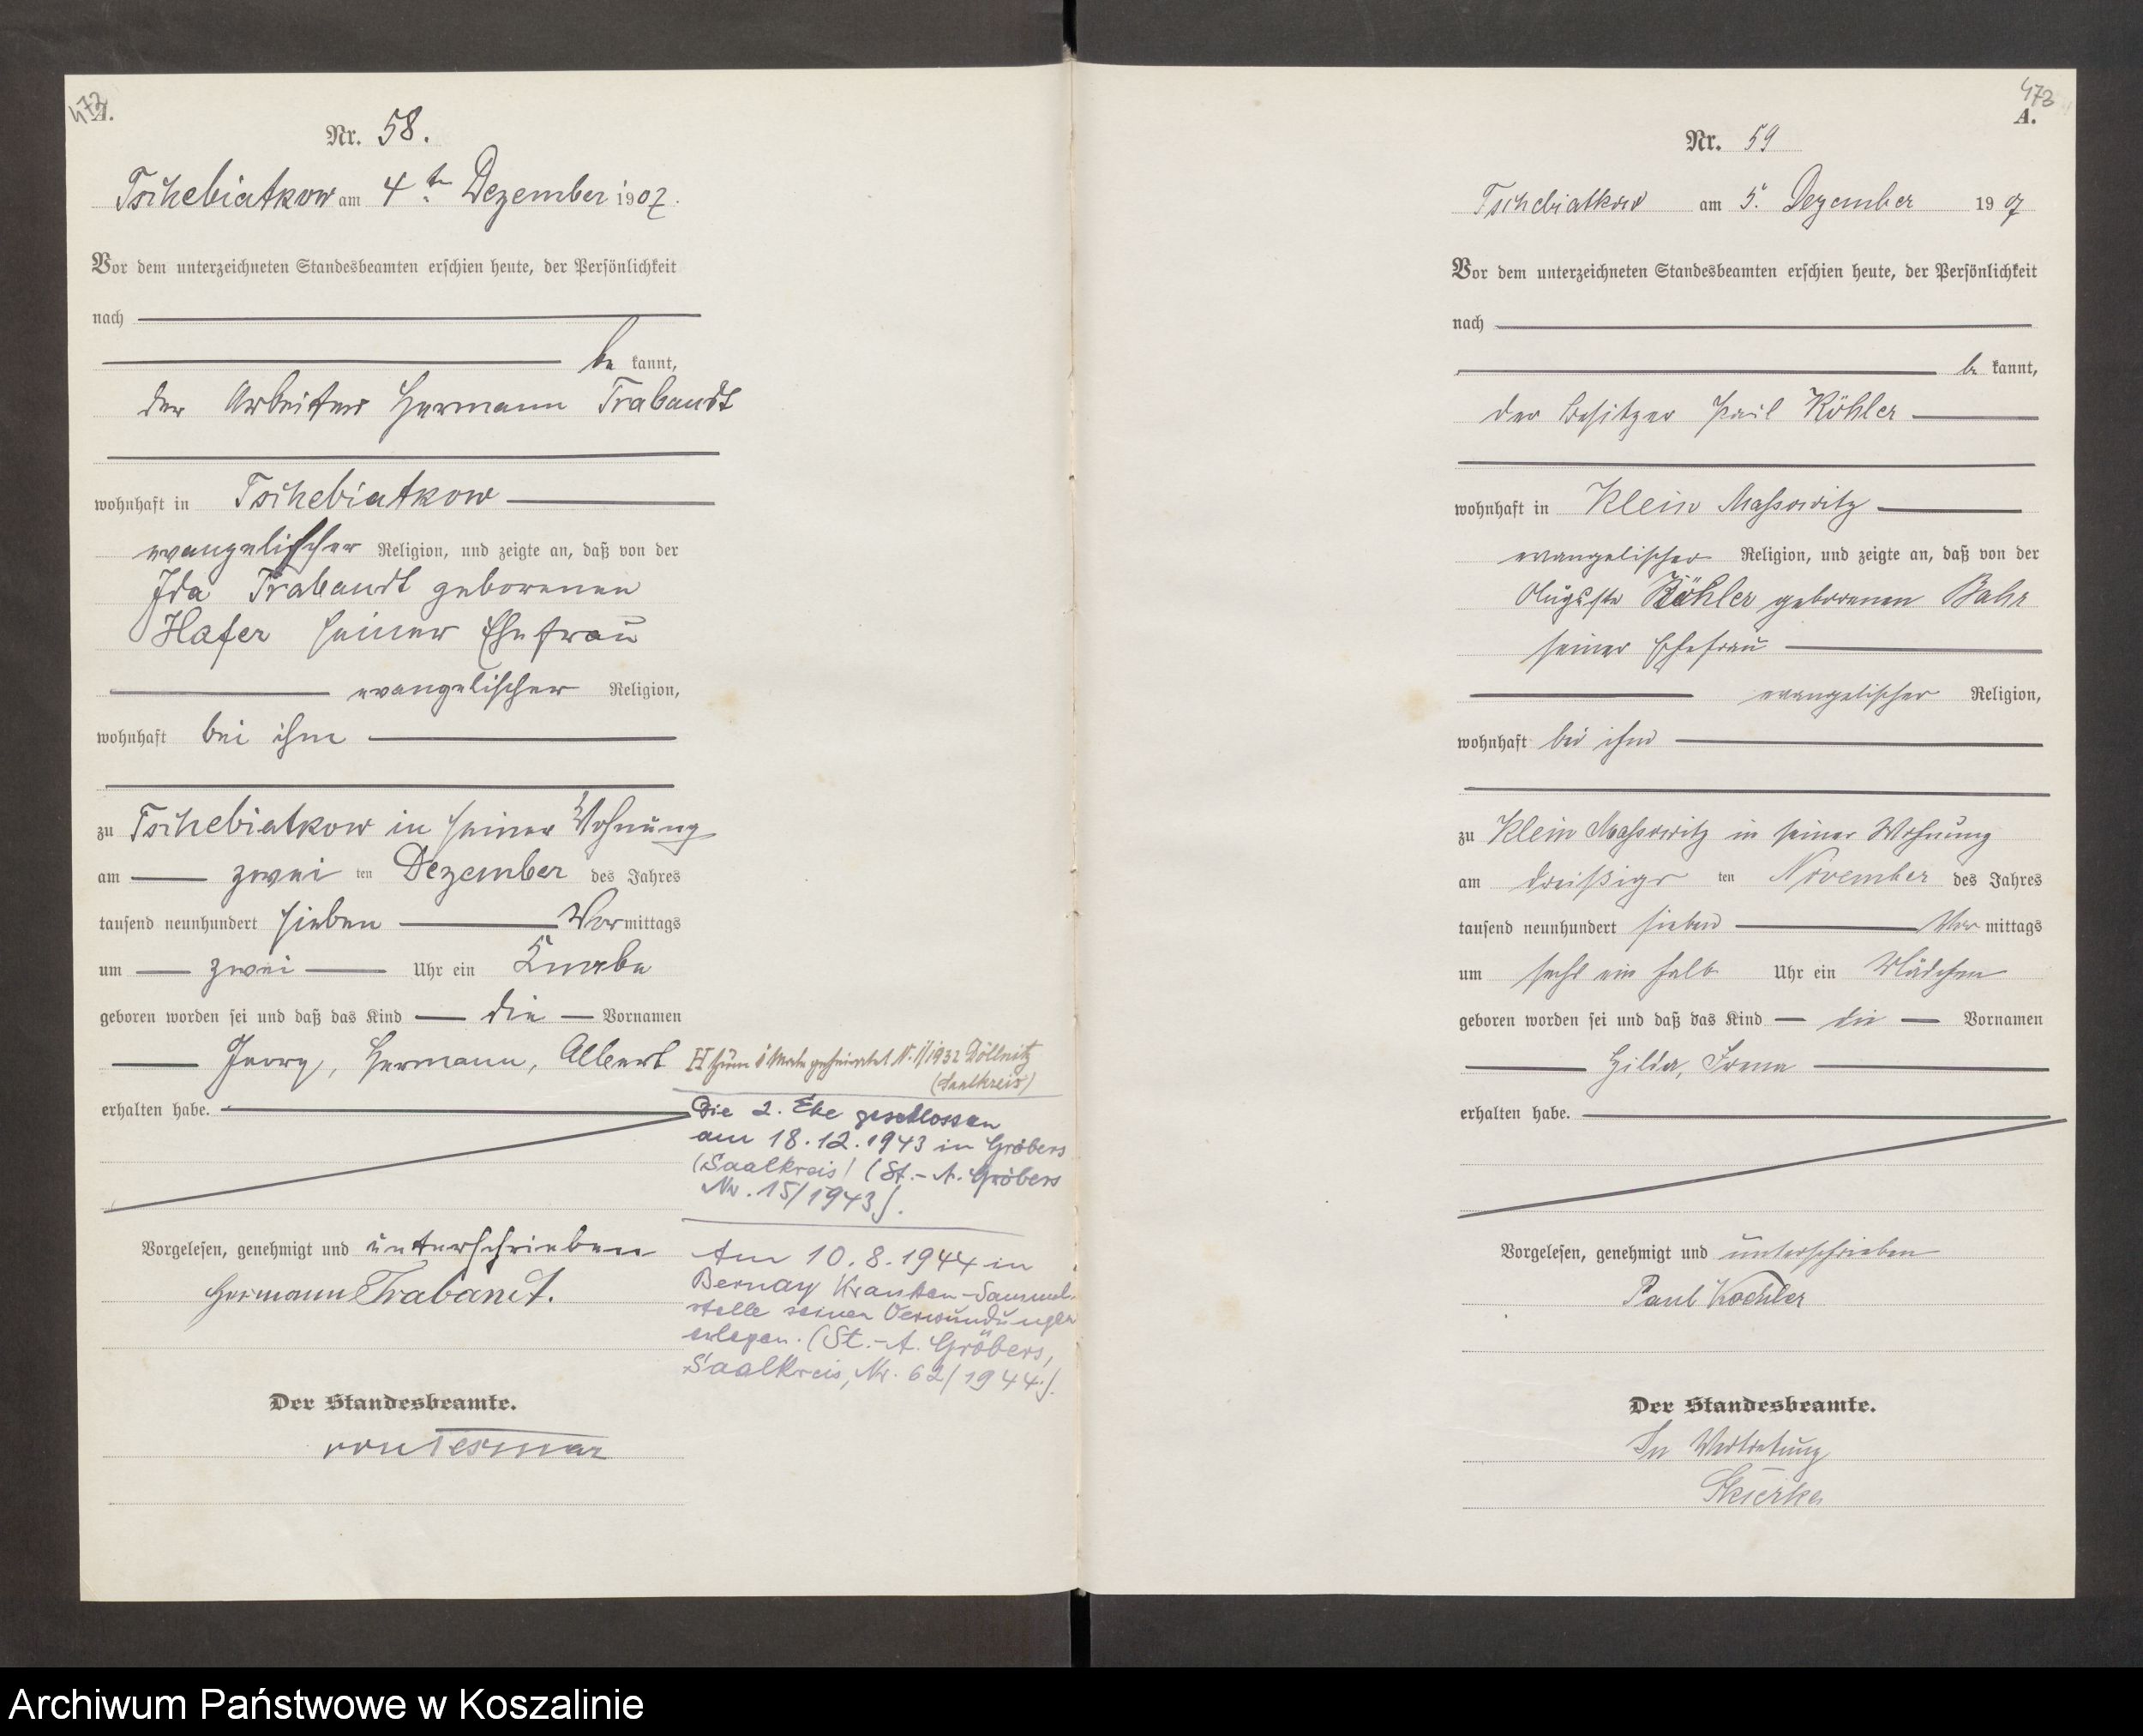 472
A.
Nr. 58.
Tschebiatkow am 4ten Dezember 1907.
Vor dem unterzeichneten Standesbeamten erschien heute, der Persönlichkeit
nach
be kannt,
der Arbeiter Hermann Trabandt
wohnhaft in Tschebiatkow
evangelischer Religion, und zeigte an, daß von der
Ida Trabandt geborenen
Hafer seiner Ehefrau
evangelischer Religion,
wohnhaft bei ihm
zu Tschebiatkow in seiner Wohnung
am zwei ten Dezember des Jahres
tausend neunhundert sieben Vor mittags
um zwei Uhr ein Knabe
geboren worden sei und daß das Kind die Vornamen
Georg, Hermann, Albert
erhalten habe.
Vorgelesen, genehmigt und unterschrieben
Hermann Trabandt.
Der Standesbeamte.
von Tesmar
H zum 1 Male geheiratet N. 1/1932 Döllnitz
(Saalkreis)
Die 2. Ehe geschlossen
am 18.12.1943 in Gröbers
(Saalkreis) (St.-A. Gröbers
Nr. 15/1943).
Am 10.8.1944 in
Bernay Kranken-Sammel-
stelle seinen Verwundungen
erlegen. (St.-A. Gröbers,
Saalkreis, Nr. 62/1944).
473
A.
Nr. 59
Tschebiatkow am 5. Dezember 1907
Vor dem unterzeichneten Standesbeamten erschien heute, der Persönlichkeit
nach
be kannt,
der Besitzer Paul Köhler
wohnhaft in Klein Massowitz
evangelischer Religion, und zeigte an, daß von der
Auguste Köhler geborenen Bahr
seiner Ehefrau
evangelischer Religion,
wohnhaft bei ihm
zu Klein Massowitz in seiner Wohnung
am dreißigs ten November des Jahres
tausend neunhundert sieben Vor mittags
um sechs ein halb Uhr ein Mädchen
geboren worden sei und daß das Kind die Vornamen
Hilda, Irma
erhalten habe.
Vorgelesen, genehmigt und unterschrieben
Paul Koehler
Der Standesbeamte.
In Vertretung
Skierka
Archiwum Państwowe w Koszalinie